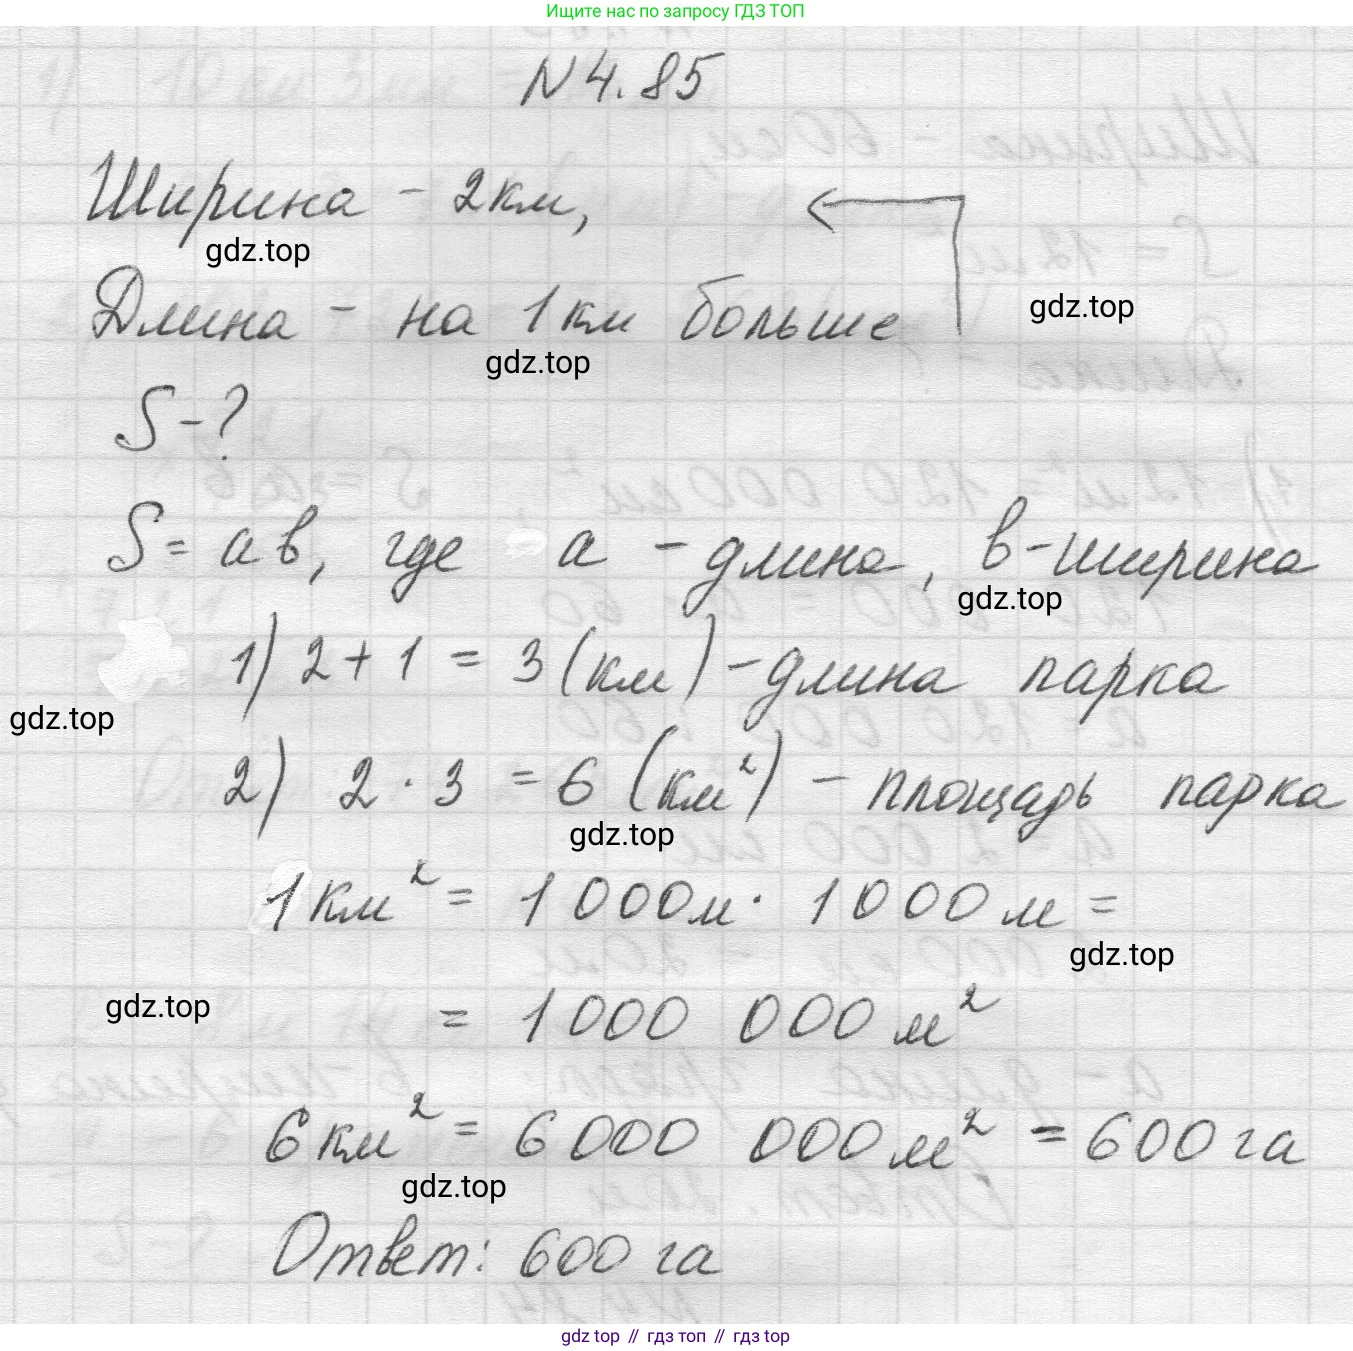 Ищите нас по запросу ГДЗ ТОП
N 4.85
Ширина - 2 км,
gdz.top
Длина - на 1 км больше
gdz.top
gdz.top
S - ?
S = ab, где a - длина, b - ширина
gdz.top
1) 2 + 1 = 3 (км) - длина парка
gdz.top
2) 2 · 3 = 6 (км²) - площадь парка
gdz.top
1 км² = 1 000 м · 1000 м =
gdz.top
gdz.top
= 1 000 000 м²
6 км² = 6 000 000 м² = 600 га
gdz.top
Ответ: 600 га
gdz top // гдз топ // гдз top